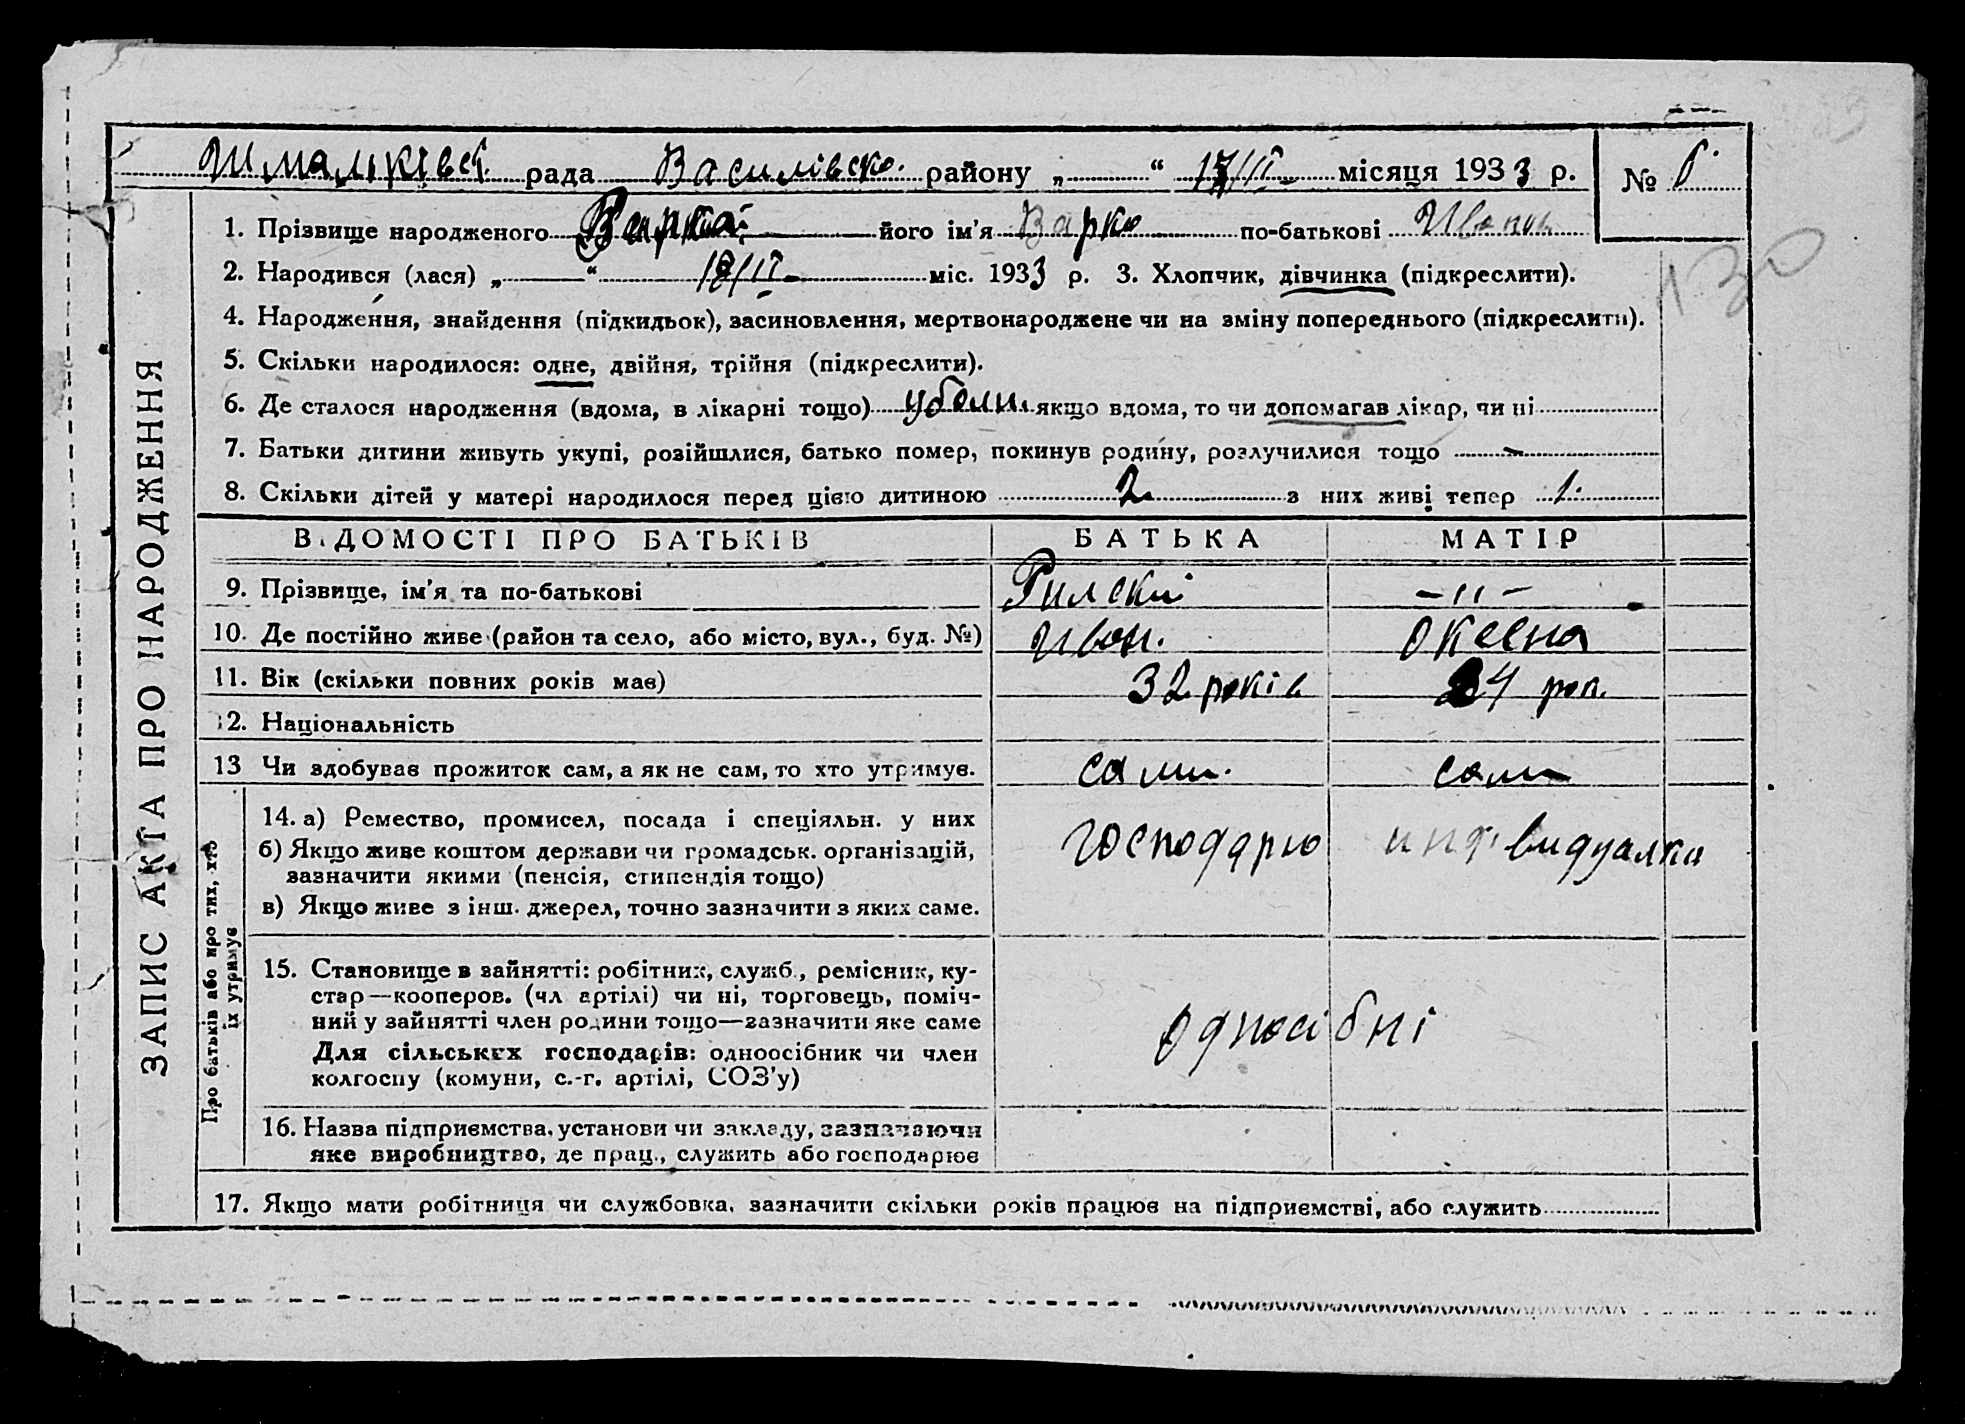 рада района „ “ 17/II місяця 1933 р. №
1. Прізвище народженого його ім’я Варка по-батькові Иванов
2. Народився (лася) „ “ 18/II міс. 1933 р. 3. Хлопчик, дівчинка (підкреслити).
4. Народження, знайдення (підкидьок), засиновлення, мертвонароджене чи на зміну попереднього (підкреслити).
5. Скільки народилося: одне, двійня, трійня (підкреслити).
6. Де сталося народження (вдома, в лікарні тощо) якщо вдома, то чи допомагав лікар, чи ні
7. Батьки дитини живуть укупі, розійшлися, батько помер, покинув родину, розлучилися тощо –
8. Скільки дітей у матері народилося перед цією дитиною 2 з них живі тепер 1.
ВІДОМОСТІ ПРО БАТЬКІВ БАТЬКА МАТІР
9. Прізвище, ім’я та по-батькові –11–
10. Де постійно живе (район та село, або місто, вул., буд. №) Иван.
11. Вік (скільки повних років має) 32 років 24 рок.
12. Національність
13 Чи здобуває прожиток сам, а як не сам, то хто утримує. сами. сами
14. а) Ремество, промисел, посада і спеціяльн. у них
б) Якщо живе коштом держави чи громадськ. організацій, господарю индивидуалка
зазначити якими (пенсія, стипендія тощо)
в) Якщо живе з інш. джерел, точно зазначити з яких саме.
15. Становище в зайнятті: робітник, служб., ремісник, ку-
стар—кооперов. (чл артілі) чи ні, торговець, поміч-
ний у зайнятті член родини тощо—зазначити яке саме односібні
Для сільських господарів: одноосібник чи член
колгоспу (комуни, с.-г. артілі, СОЗ’у)
16. Назва підприємства, установи чи закладу, зазначаючи
яке виробництво, де прац., служить або господарює
17. Якщо мати робітниця чи службовка, зазначити скільки років працює на підприємстві, або служить
ЗАПИС АКТА ПРО НАРОДЖЕННЯ
Про батьків або про тих, хто
їх утримує
130